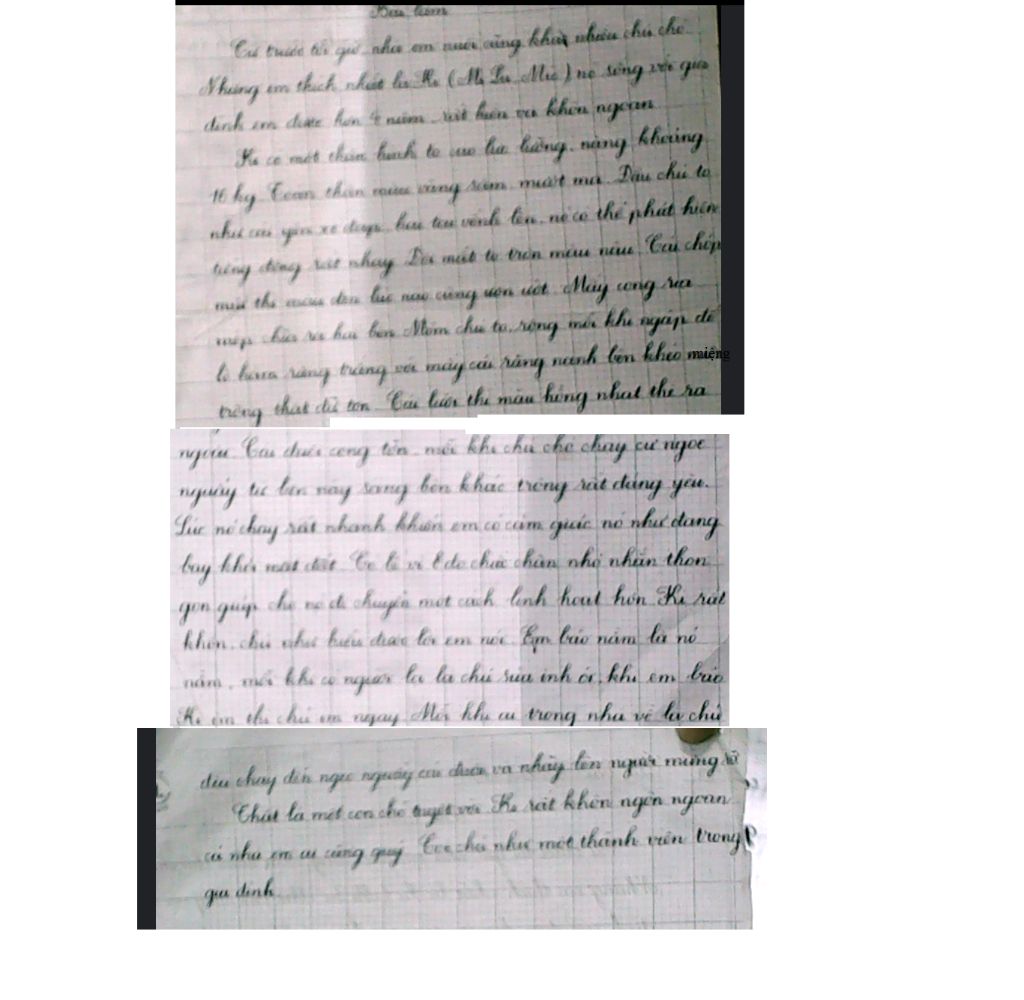 Bài làm
Từ trước tới giờ nhà em nuôi cũng khá nhiều chú chó.
Nhưng em thích nhất là Ki (Mi Lu, Mic) nó sống với gia
đình em được hơn 4 năm rất hiền và khôn ngoan
Ki có một thân hình to cao lực lưỡng, nặng khoảng
16 kg. Toàn thân màu vàng sẫm, mượt mà. Đầu chú to
như cái yên xe đạp, hai tai vểnh lên, nó có thể phát hiện
tiếng động rất nhạy. Đôi mắt to tròn màu nâu. Cái chóp
mũi thì màu đen lúc nào cũng ươn ướt. Mấy cọng ria
mép chĩa ra hai bên. Mõm chú ta rộng mỗi khi ngáp để
lộ hàm răng trắng với mấy cái răng nanh bên khéo miệng
trông thật dữ tợn. Cái lưỡi thì màu hồng nhạt thè ra
ngoài. Cái đuôi cong tớn, mỗi khi chú chó chạy cứ ngoe
nguẩy từ bên này sang bên khác trông rất đáng yêu.
Lúc nó chạy rất nhanh khiến em có cảm giác nó như đang
bay khỏi mặt đất. Có lẽ vì 4 chiếc chân nhỏ nhắn thon
gọn giúp cho nó di chuyển một cách linh hoạt hơn. Ki rất
khôn, chú như hiểu được lời em nói. Em bảo nằm là nó
nằm, mỗi khi có người lạ là chú sủa inh ỏi, khi em bảo
Ki im thì chú im ngay. Mỗi khi ai trong nhà về là chú
đều chạy đến ngoe nguẩy cái đuôi, và nhảy lên người mừng rỡ
Thật là một con chó tuyệt vời. Ki rất khôn ngôn ngoan
cả nhà em ai cũng quý. Coi chú như một thành viên trong
gia đình